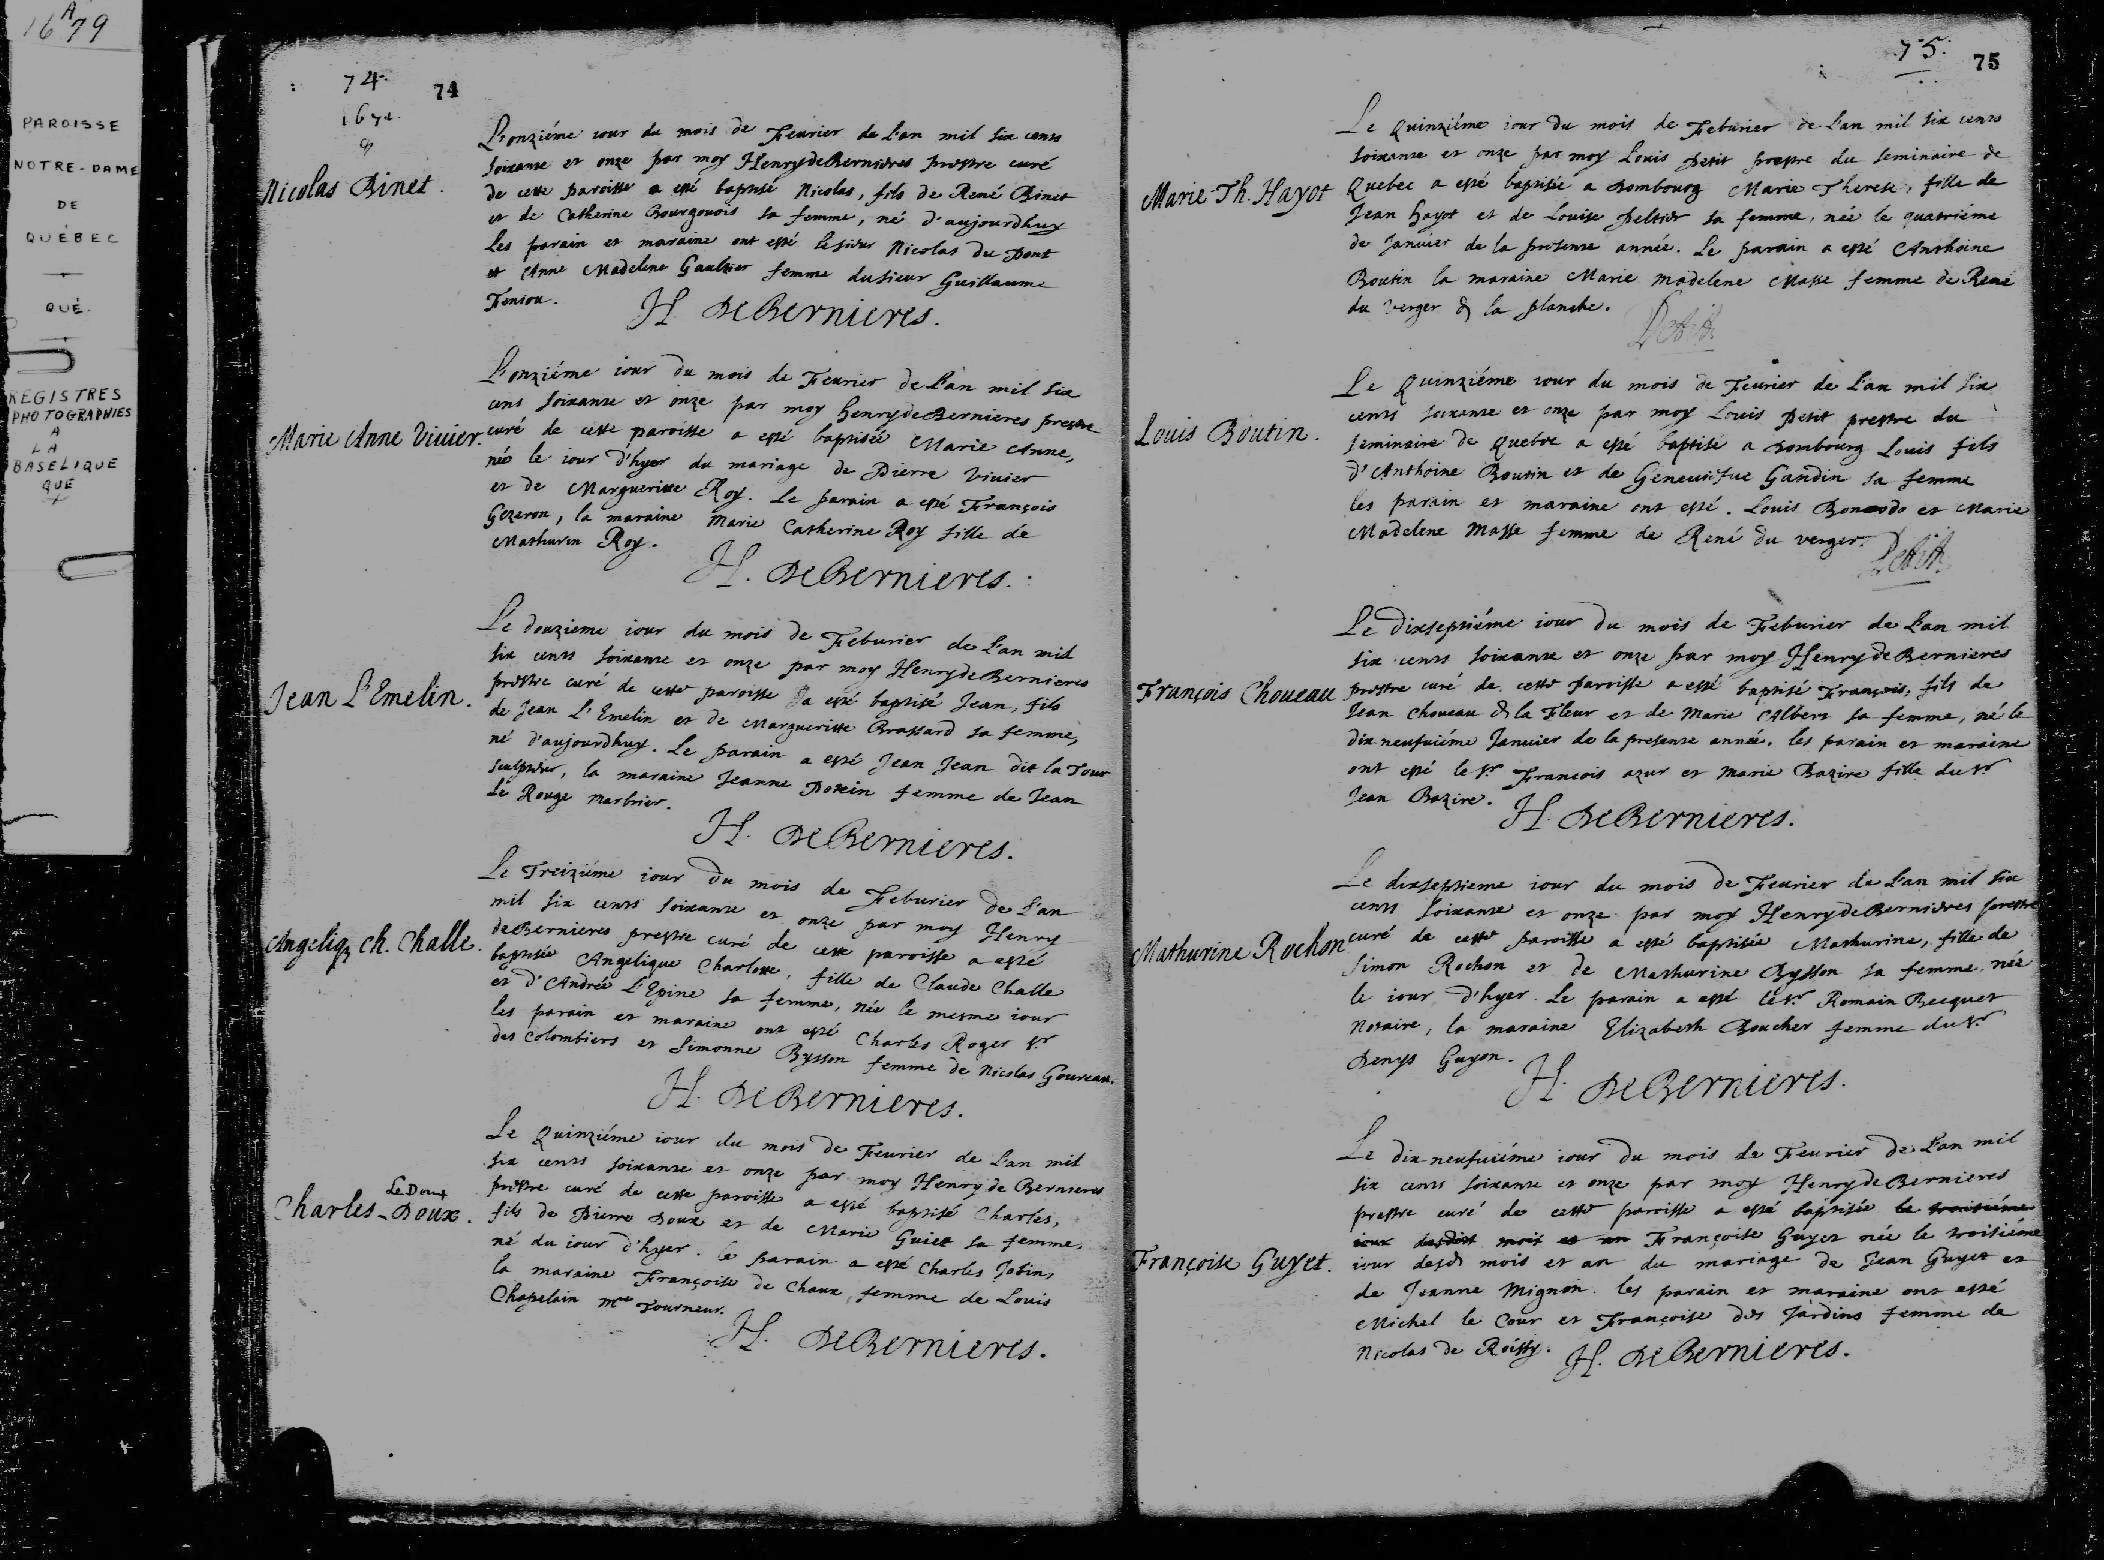 16A79
PAROISSE
NOTRE-DAME
DE
QUÉBEC
QUÉ.
REGISTRES
PHOTOGRAPHIES
A
LA
BASELIQUE
QUE
74. 74
Nicolas Binet.
L'onziéme iour du mois de Feurier de L'an mil six cents
soixante et onze par moy Henry de Bernieres prestre curé
de cette paroisse a esté baptisé Nicolas, fils de René Binet
et de Catherine Bourgouois sa femme, né d'aujourdhuy
Les parain et maraine ont esté le sieur Nicolas du Pont
et Anne Madelene Gaultier femme du sieur Guillaume
Feniou.
H. DeBernieres.
Marie Anne Viuier.
L'onziéme iour du mois de Feurier de L'an mil six
cens soixante et onze par moy henry de Bernieres prestre
curé de cette paroisse a esté baptisée Marie Anne,
née le iour d'hyer du mariage de Pierre Viuier
et de Margueritte Roy. Le parain a esté François
Gezeron, la maraine Marie Catherine Roy fille de
Mathurin Roy.
H. DeBernieres.
Jean L'Emelin.
Le douzieme iour du mois de Feburier de L'an mil
six cents soixante et onze par moy Henry de Bernieres
prestre curé de cette paroisse a esté baptisé Jean, fils
de Jean L'Emelin et de Margueritte Brassard sa femme,
né d'aujourdhuy. Le parain a esté Jean Jean dit la Tour
sculpteur, la maraine Jeanne Poxein femme de Jean
Le Rouge marbrier.
H. DeBernieres.
Angeliq; Ch. Challe.
Le Treiziéme iour du mois de Feburier de L'an
mil six cents soixante et onze par moy Henry
de Bernieres prestre curé de cette paroisse a esté
baptisée Angelique Charlotte, fille de Claude Challe
et d'Andrée L'Epine sa femme, née le mesme iour
les parain et maraine ont esté Charles Roger Sr
des Colombiers et Simonne Bysson femme de Nicolas Goureau.
H. DeBernieres.
Le Doux
Charles Doux.
Le Quinziéme iour du mois de Feurier de L'an mil
six cents soixante et onze par moy Henry de Bernieres
prestre curé de cette paroisse a esté baptisé Charles,
fils de Pierre Doux et de Marie Guiet sa femme,
né du iour d'hyer. le parain a esté Charles Jobin,
la maraine Françoise de Chaux, femme de Louis
Chapelain Me Tourneur.
H. DeBernieres.
75. 75
Marie Th. Hayot
Le Quinziéme iour du mois de Feburier de L'an mil six cents
soixante et onze par moy Louis Petit prestre du seminaire de
Quebec a esté baptisée a Dombourg Marie Therese, fille de
Jean hayot et de Louise Peltier sa femme, née le quatriéme
de Januier de la presente année. Le parain a esté Anthoine
Boutin la maraine Marie madelene Masse femme de René
du Verger d. la planche.
Petit
Louis Boutin.
Le Quinziéme iour du mois de Feurier de L'an mil six
cents soixante et onze par moy Louis Petit prestre du
seminaire de Quebec a esté baptisé a Dombourg Louis fils
d'Anthoine Boutin et de Geneuiefue Gandin sa femme
les parain et maraine ont esté. Louis Bonodo et Marie
Madelene Masse femme de René du verger.
Petit
François Choueau
Le dixseptiéme iour du mois de Feburier de L'an mil
six cents soixante et onze par moy Henry de Bernieres
prestre curé de cette paroisse a esté baptisé François, fils de
Jean Choueau d. la Fleur et de Marie Albert sa femme, né le
dix neufuiéme Januier de la presente année. les parain et maraine
ont esté le Sr François azur et Marie Bazire fille du Sr
Jean Bazire.
H. DeBernieres.
Mathurine Rochon
Le dixseptieme iour du mois de Feurier de L'an mil six
cents soixante et onze par moy Henry de Bernieres prestre
curé de cette paroisse a esté baptisée Mathurine, fille de
Simon Rochon et de Mathurine Bysson sa femme née
le iour d'hyer. Le parain a esté le Sr Romain Becquet
Notaire, la maraine Elizabeth Boucher femme du Sr
Denys Guyon.
H. DeBernieres.
Françoise Guyet.
Le dix neufuiéme iour du mois de Feurier de L'an mil
six cents soixante et onze par moy Henry de Bernieres
prestre curé de cette paroisse a esté baptisée le troisiéme
iour desdits mois et an Françoise Guyet née le troisiéme
iour desd. mois et an du mariage de Jean Guyet et
de Jeanne Mignon. les parain et maraine ont esté
Michel le Cour et Françoise des Jardins femme de
Nicolas de Roissy.
H. DeBernieres.